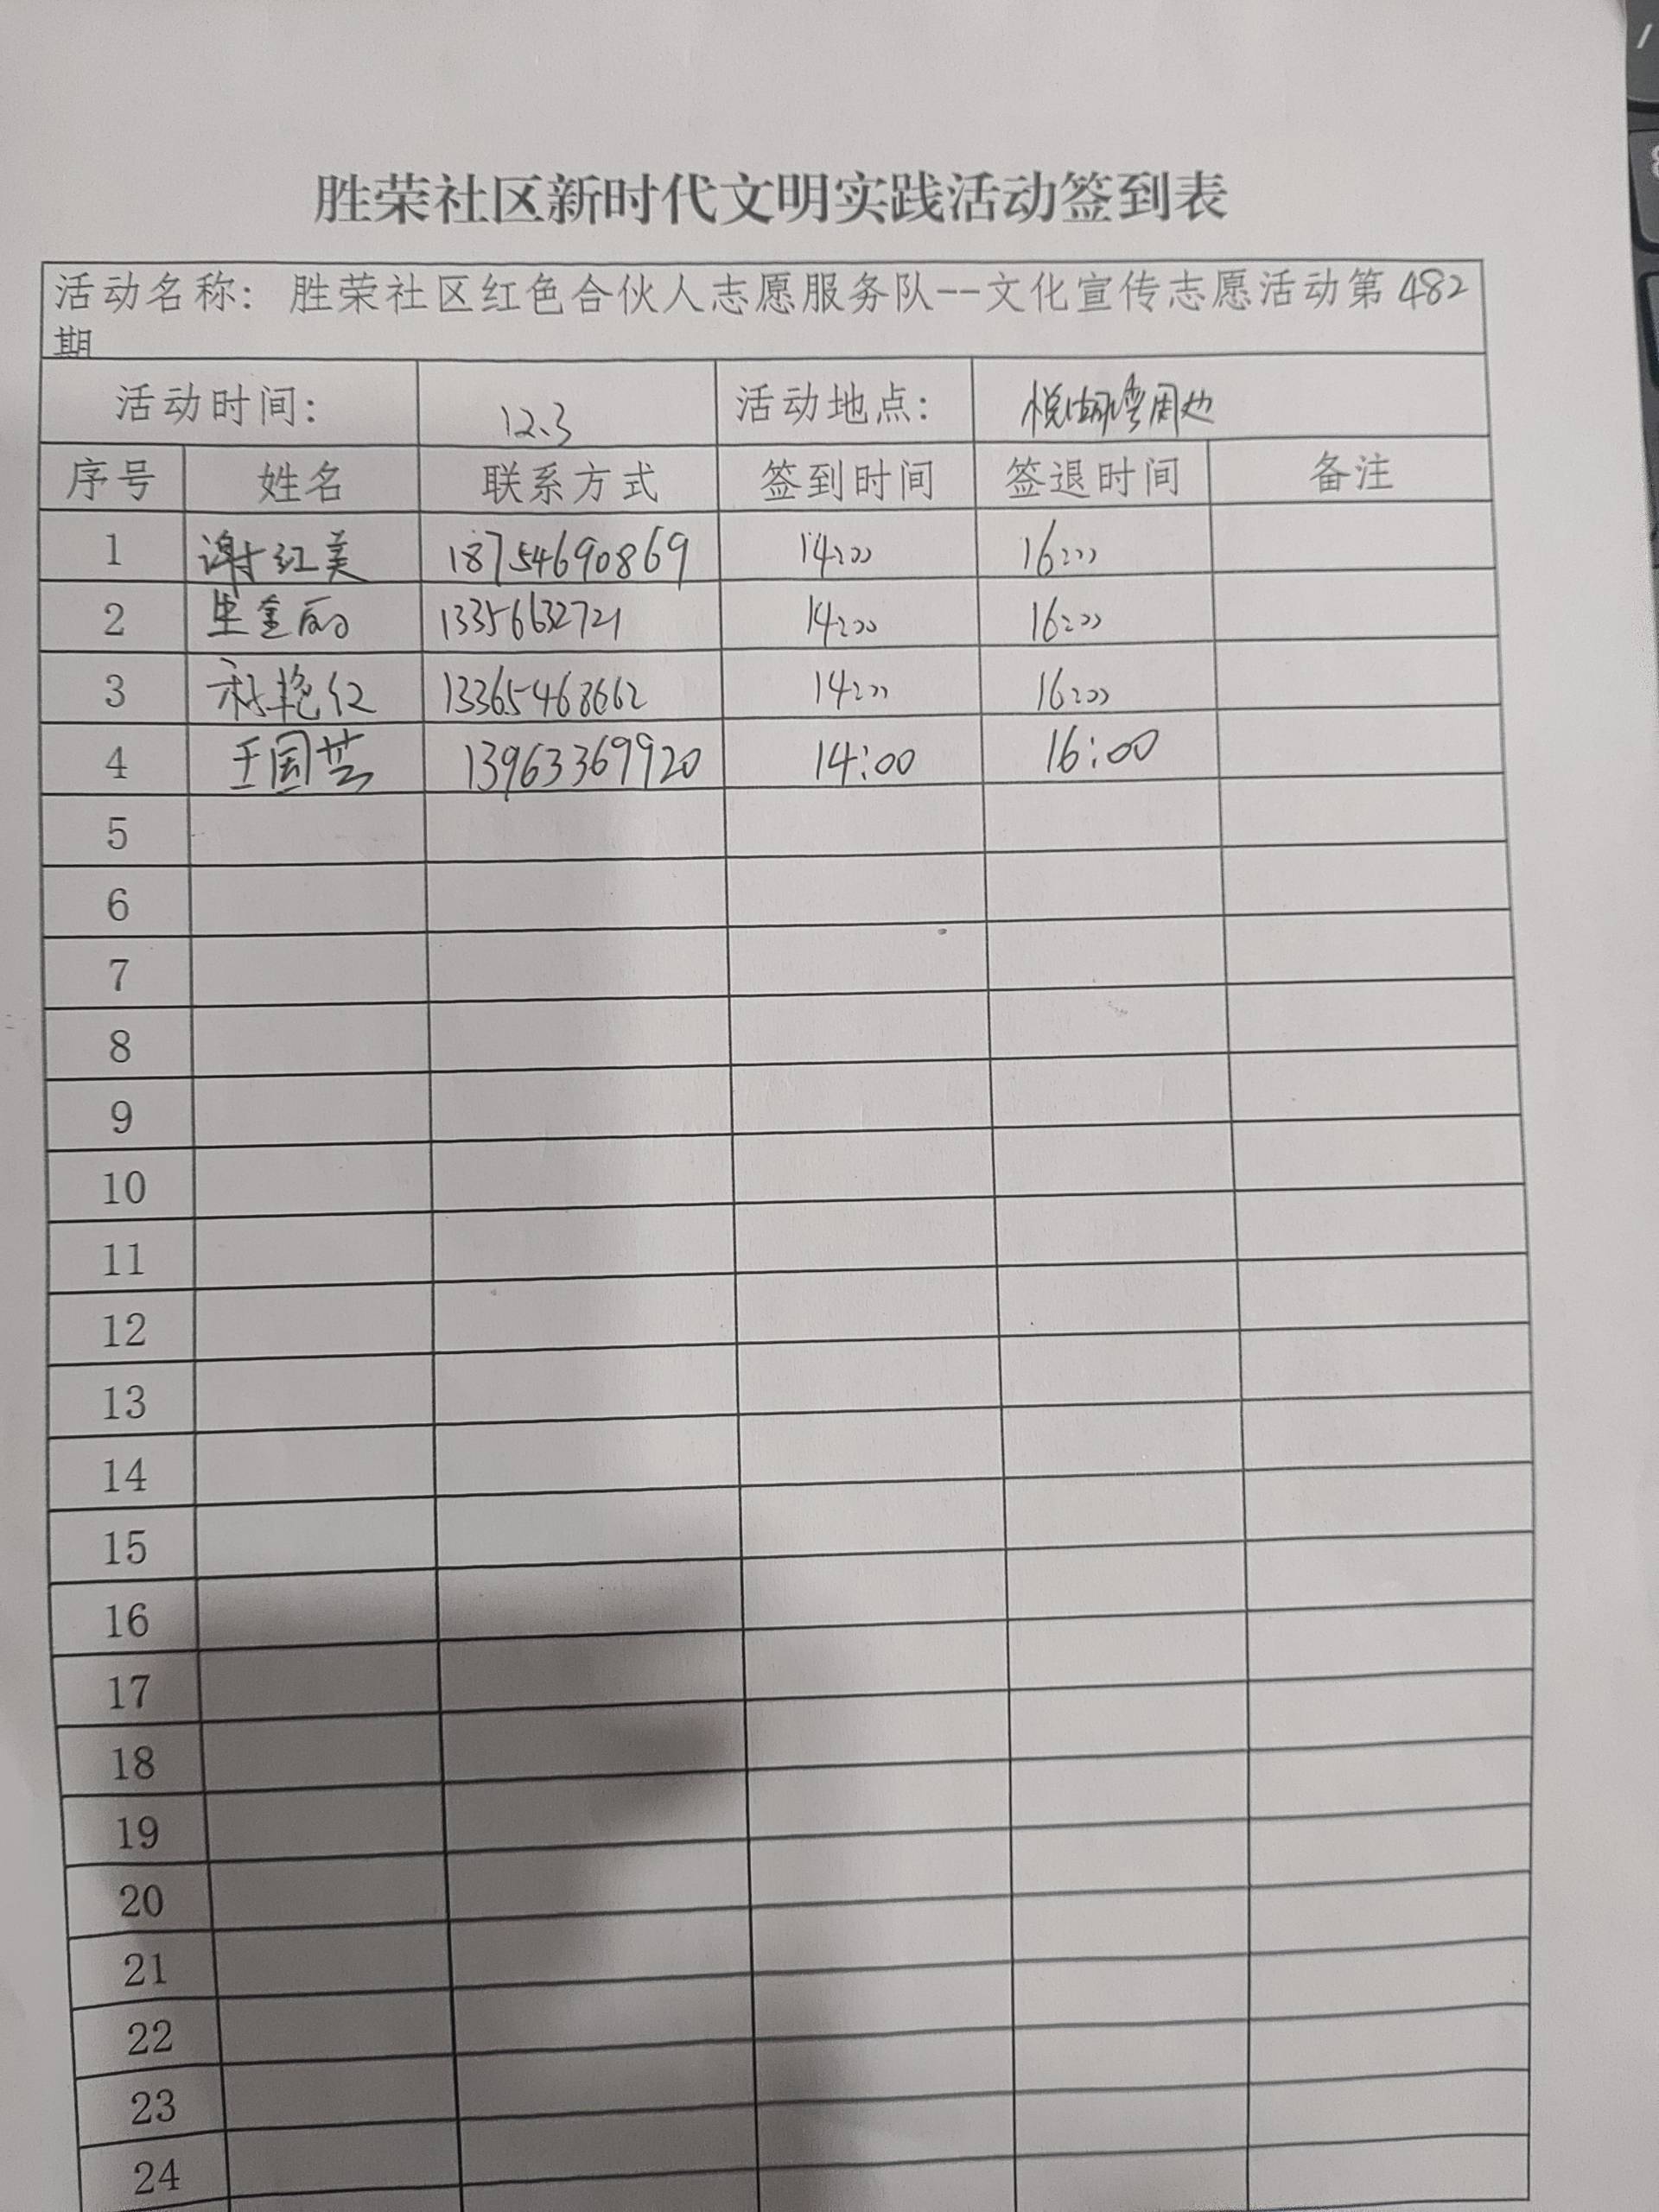 胜荣社区新时代文明实践活动签到表
活动名称：胜荣社区红色合伙人志愿服务队--文化宣传志愿活动第482
期
活动时间： 12.3 活动地点： 悦湖湾周边
序号 姓名 联系方式 签到时间 签退时间 备注
1 谢红美 18754690869 14:00 16:00
2 14:00 16:00
3 艳红 14:00 16:00
4 王国芸 13963369920 14:00 16:00
5
6
7
8
9
10
11
12
13
14
15
16
17
18
19
20
21
22
23
24